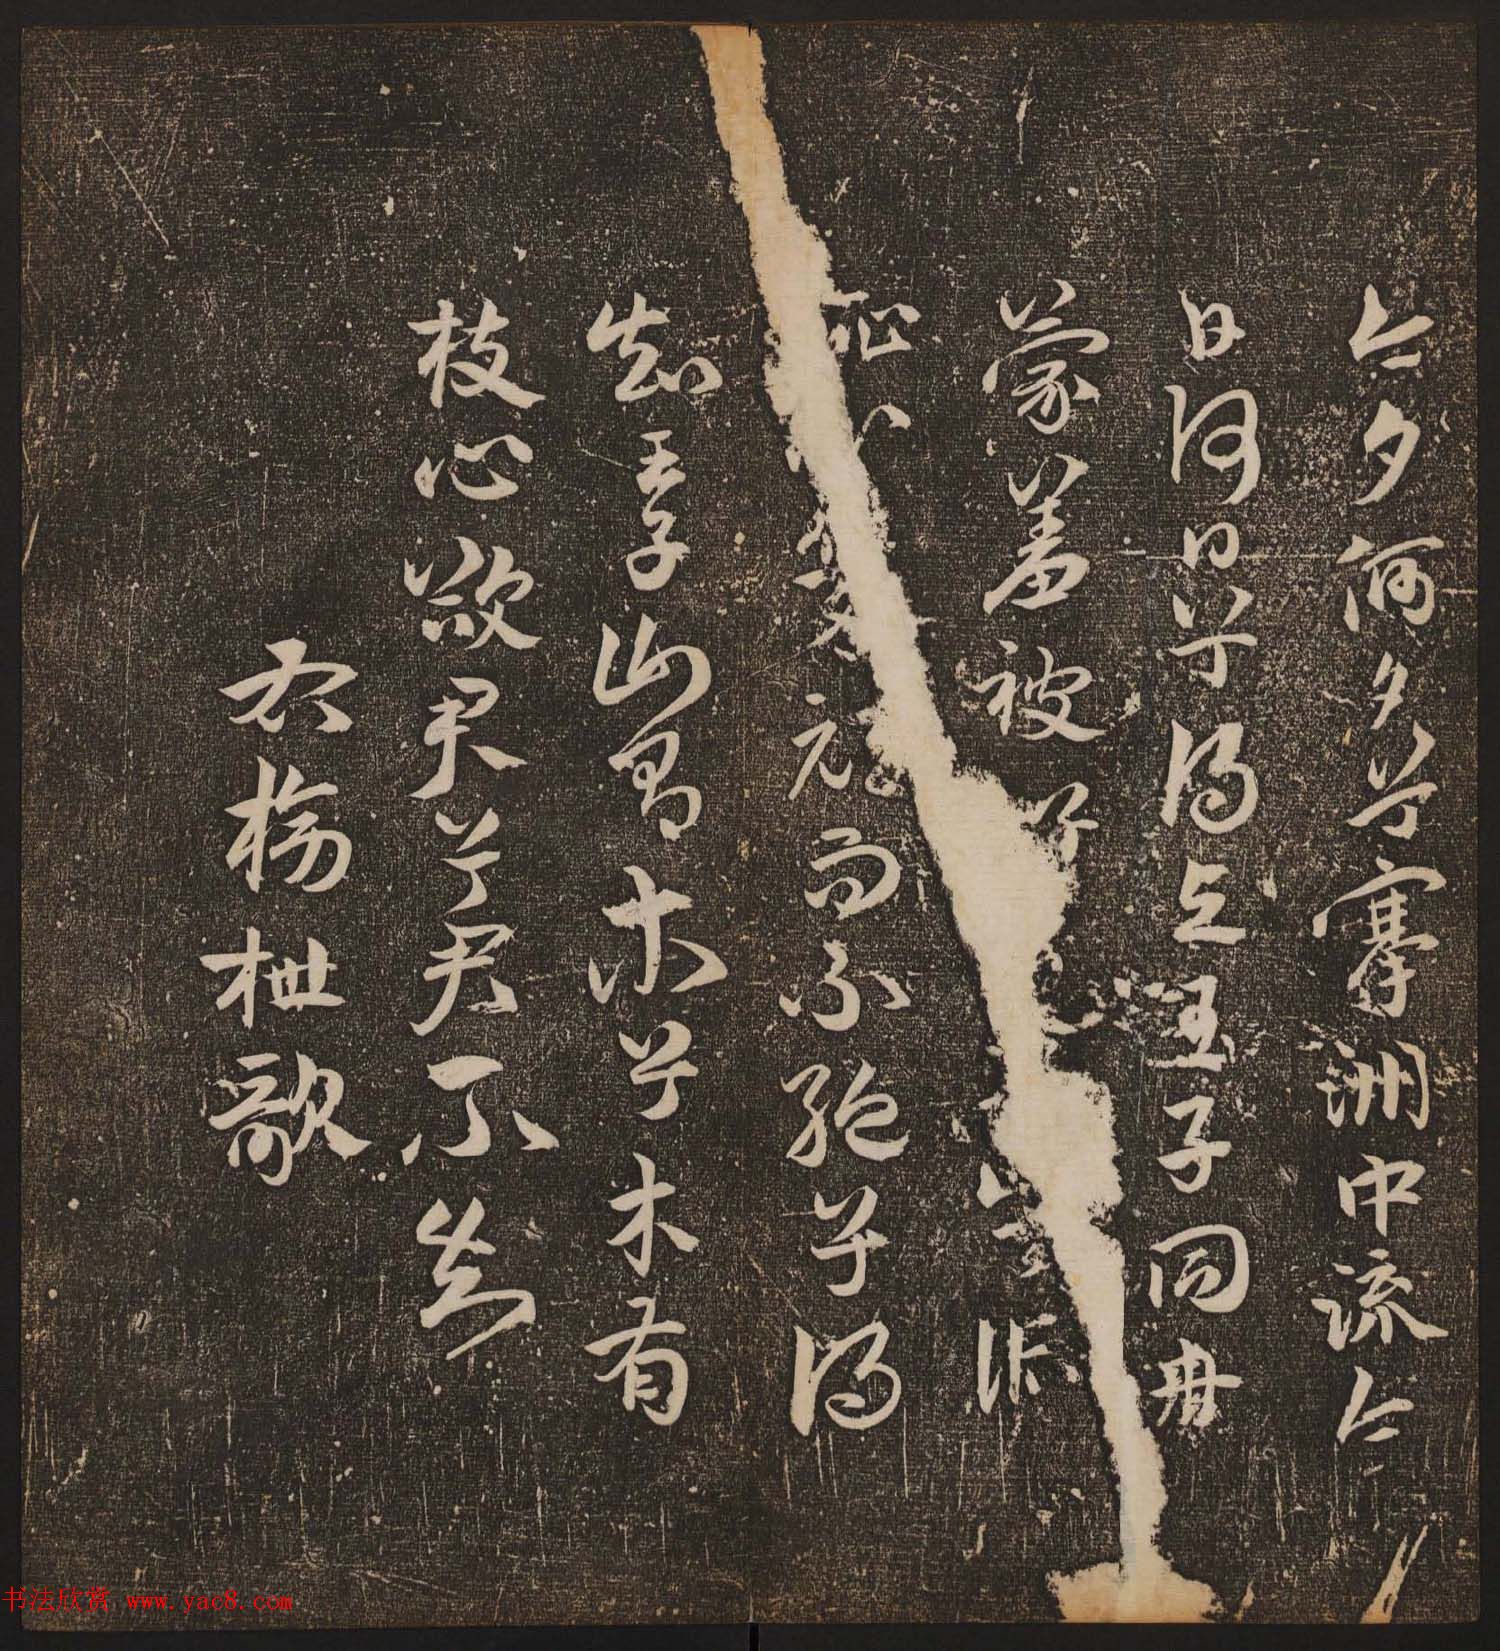 今夕何夕兮搴洲中流今
日何日兮得与王子同舟
蒙羞被好訾
恥心幾頑而不絕兮得
知王子山有木兮木有
枝心欲君兮君不知
右榜枻歌
书法欣赏 www.yac8.com